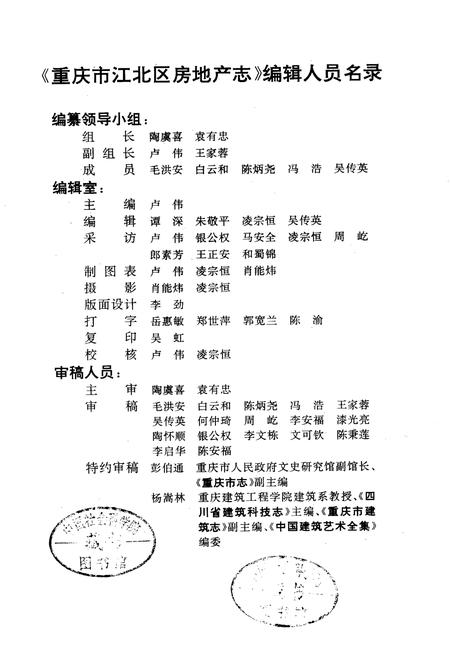 《重庆市江北区房地产志》编辑人员名录
编纂领导小组：
组 长 陶虞喜 袁有忠
副组长 卢 伟 王家蓉
成 员 毛洪安 白云和 陈炳尧 冯 浩 吴传英
编辑室：
主 编 卢 伟
编 辑 谭 深 朱敬平 凌宗恒 吴传英
采 访 卢 伟 银公权 马安全 凌宗恒 周 屹
郎素芳 王正安 和蜀锦
制图表 卢 伟 凌宗恒 肖能炜
摄 影 肖能炜 凌宗恒
版面设计 李 劲
打 字 岳惠敏 郑世萍 郭宽兰 陈 渝
复 印 吴 虹
校 核 卢 伟 凌宗恒
审稿人员：
主 审 陶虞喜 袁有忠
审 稿 毛洪安 白云和 陈炳尧 冯 浩 王家蓉
吴传英 何仲琦 周 屹 李安福 漆光亮
陶怀顺 银公权 李文栋 文可钦 陈秉莲
李启华 陈安福
特约审稿 彭伯通 重庆市人民政府文史研究馆副馆长、
《重庆市志》副主编
杨嵩林 重庆建筑工程学院建筑系教授、《四
川省建筑科技志》主编、《重庆市建
筑志》副主编、《中国建筑艺术全集》
编委
中国社会科学院
藏书
图书馆